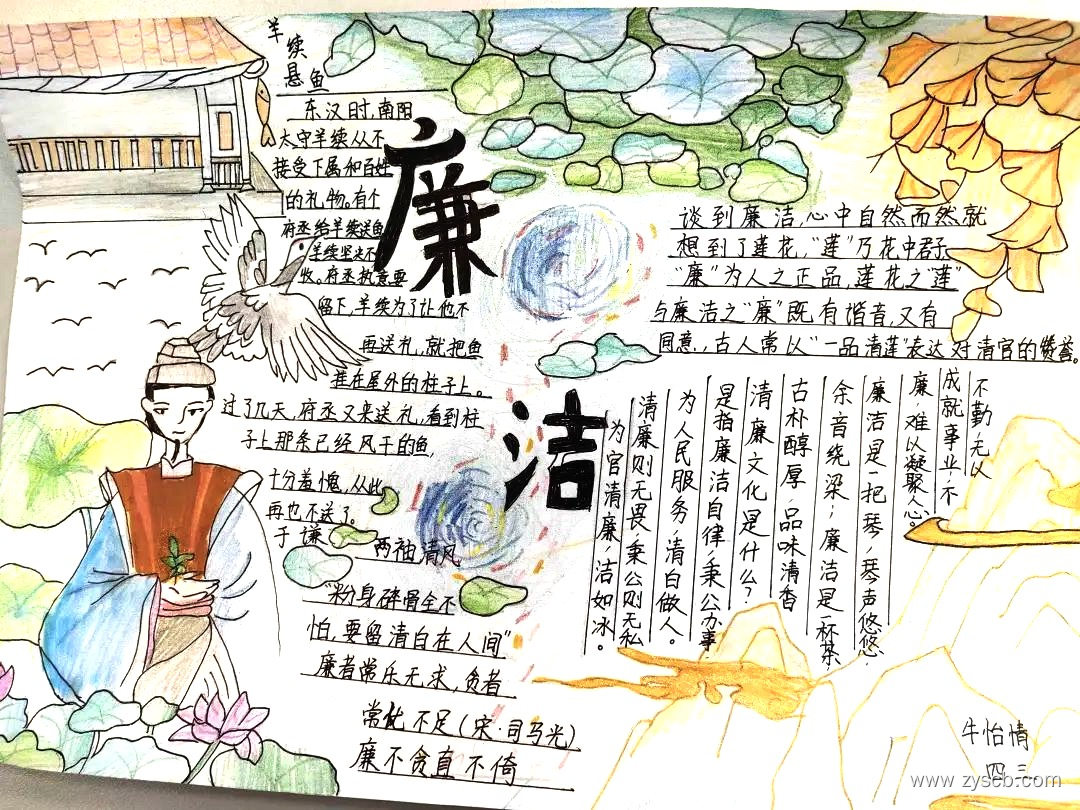 羊续
悬鱼
东汉时,南阳
太守羊续从不
接受下属和百姓
的礼物。有个
府丞给羊续送鱼
羊续坚决不
收。府丞执意要
留下,羊续为了让他不
再送礼,就把鱼
挂在屋外的柱子上。
过了几天,府丞又来送礼,看到柱
子上那条已经风干的鱼,
十分羞愧,从此
再也不送了。
于谦
两袖清风
“粉身碎骨全不
怕,要留清白在人间”
廉者常乐无求,贪者
常忧不足(宋·司马光)
廉不贪直不倚
廉
洁
谈到廉洁,心中自然而然就
想到了莲花,“莲”乃花中君子
“廉”为人之正品,莲花之“莲”
与廉洁之“廉”既有谐音,又有
同意,古人常以“一品清莲”表达对清官的赞誉。
不勤,无以
成就事业,不
廉,难以凝聚心。
廉洁是一把琴,琴声悠悠,
余音绕梁;廉洁是一杯茶
古朴醇厚,品味清香
清廉文化是什么?
是指廉洁自律,秉公办事
为人民服务,清白做人。
清廉则无畏,秉公则无私
为官清廉,洁如冰。
牛怡情
四三
www.zyscb.com